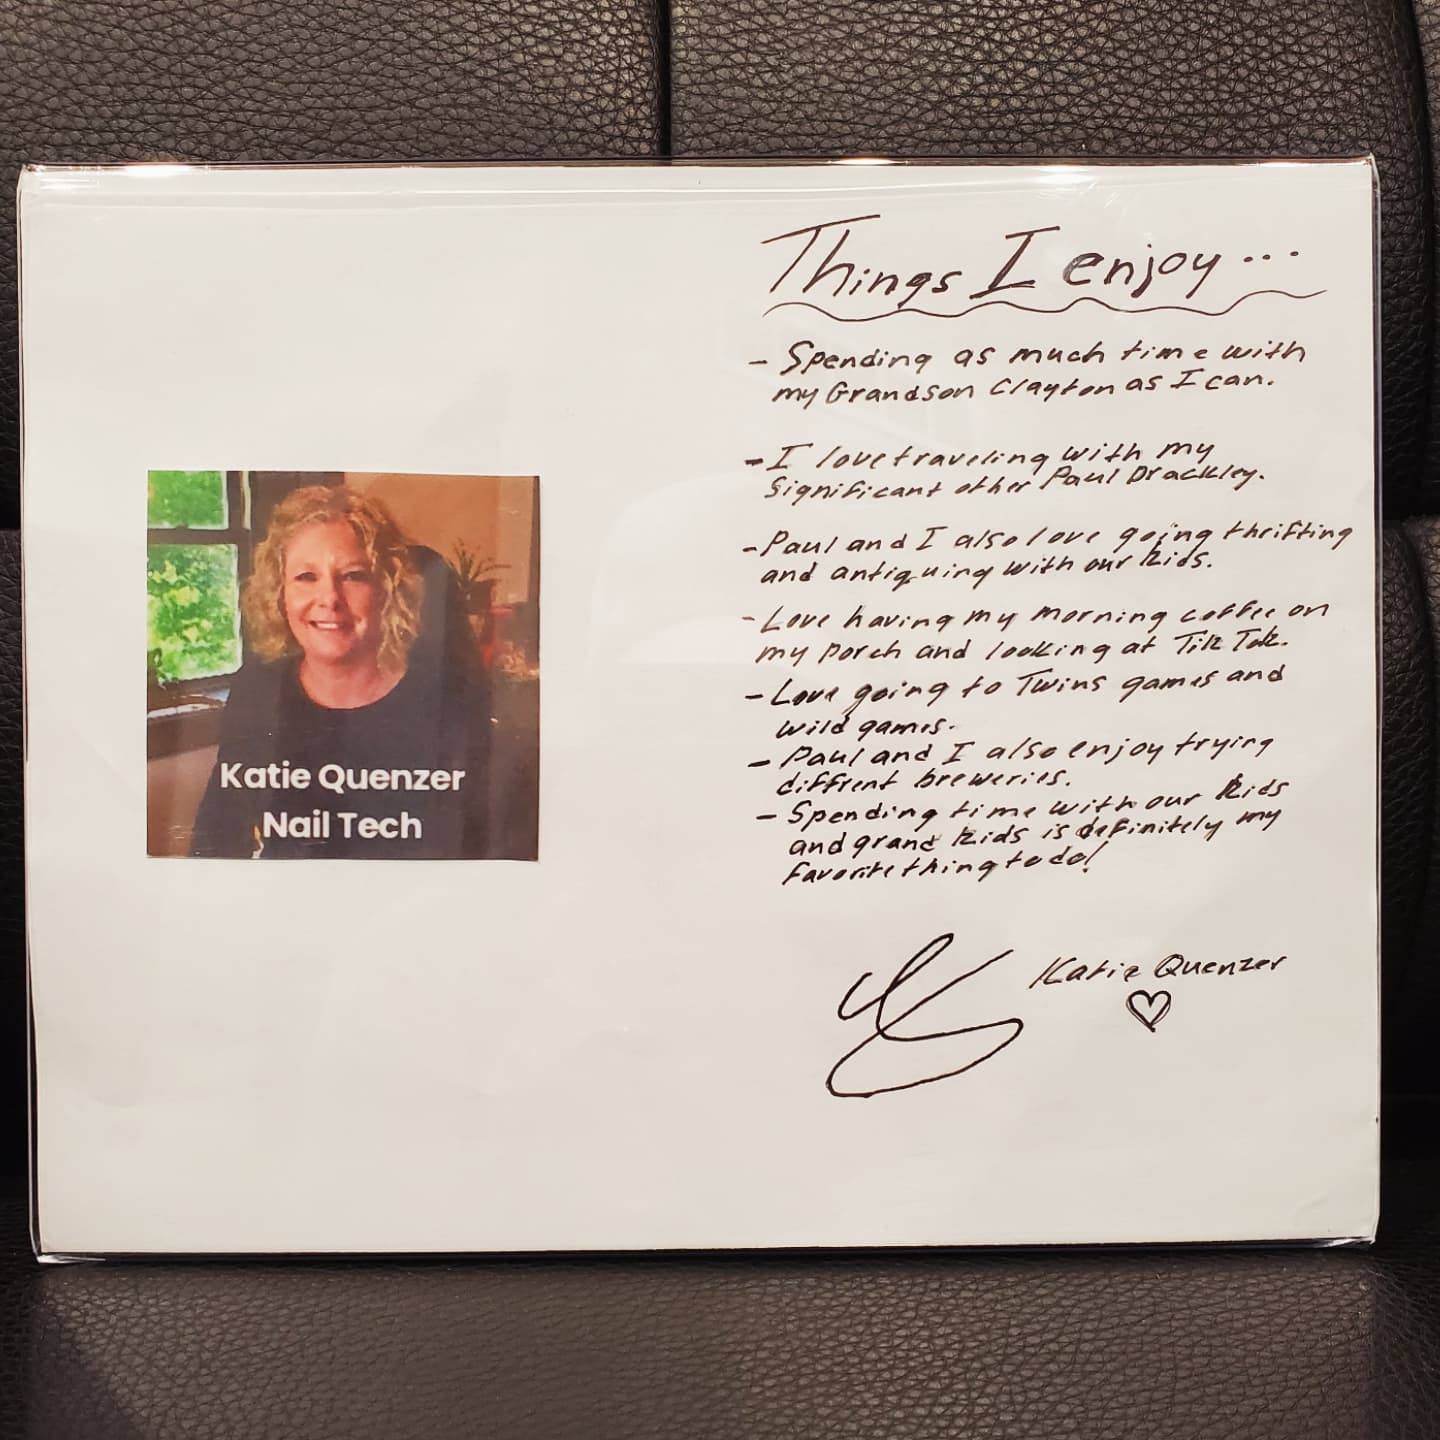 Things I enjoy...
- Spending as much time with
my Grandson Clayton as I can.
- I love traveling with my
significant other Paul Drackley.
- Paul and I also love going thrifting
and antiquing with our kids.
- Love having my morning coffee on
my porch and looking at Tik Tok.
- Love going to Twins games and
wild games.
- Paul and I also enjoy trying
diffrent breweries.
- Spending time with our kids
and grand kids is definitely my
favorite thing to do!
Katie Quenzer
Katie Quenzer
Nail Tech